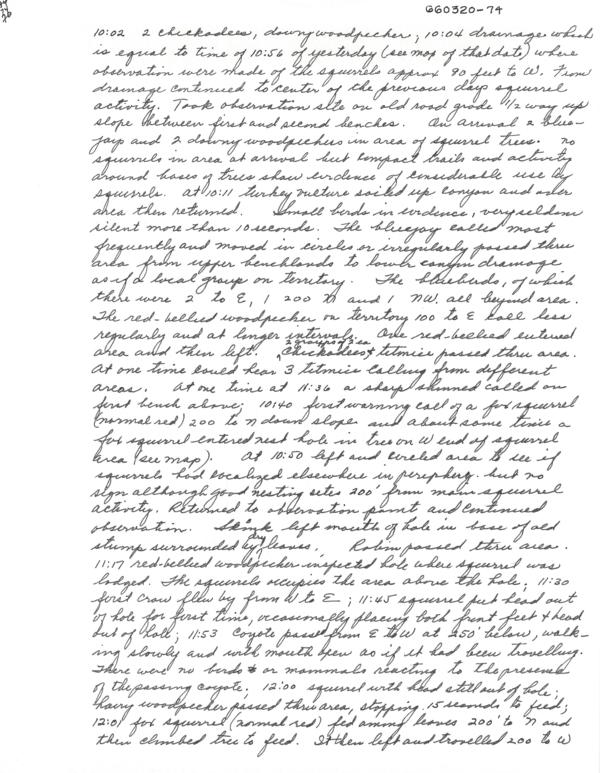 660320-74
10:02 2 chickadees, downy woodpecker; 10:04 drainage which
is equal to time of 10:56 of yesterday (see map of that date) where
observation were made of the squirrels approx 90 feet to W. From
drainage continued to center of the previous days squirrel
activity. Took observation site on old road grade 1/2 way up
slope between first and second benches. On arrival 2 blue-
jays and 2 downy woodpeckers in area of squirrel trees. no
squirrels in area at arrival but compact trails and activity
around bases of trees show evidence of considerable use by
squirrels. at 10:11 turkey vulture sailed up canyon and over
area then returned. Small birds in evidence, very seldom
silent more than 10 seconds. The bluejay called most
frequently and moved in circles or irregularly passed thru
area from upper benchlands to lower canyon drainage
as if a local group on territory. The bluebirds, of which
there were 2 to E, 1 200 N and 1 NW. all beyond area.
The red-bellied woodpecker on territory 100 to E call less
regularly and at longer intervals. One red-bellied entered
area and then left. 2 groups of 3 ea Chickadees & titmice passed thru area.
At one time could hear 3 titmice calling from different
areas. At one time at 11:36 a sharp shinned called on
first bench above; 10:40 first warning call of a fox squirrel
(normal red) 200 to N down slope and about same time a
fox squirrel entered nest hole in tree on W end of squirrel
area (see map). At 10:50 left and circled area to see if
squirrels had localized elsewhere in periphery but no
sign although good nesting sites 200' from main squirrel
activity. Returned to observation point and continued
observation. Skink left mouth of hole in base of old
stump surrounded by dry leaves. Robin passed thru area.
11:17 red-bellied woodpecker inspected hole where squirrel was
lodged. The squirrels occupies the area above the hole; 11:30
first crow flew by from W to E; 11:45 squirrel put head out
of hole for first time, occasionally placing both front feet & head
out of hole; 11:53 Coyote passed from E to W at 250' below, walk-
ing slowly and with mouth open as if it had been travelling.
There were no birds or mammals reacting to the presence
of the passing coyote; 12:00 squirrel with head still out of hole;
hairy woodpecker passed thru area, stopping 15 seconds to feed;
12:01 fox squirrel (normal red) fed among leaves 200' to N and
then climbed tree to feed. It then left and travelled 200 to W